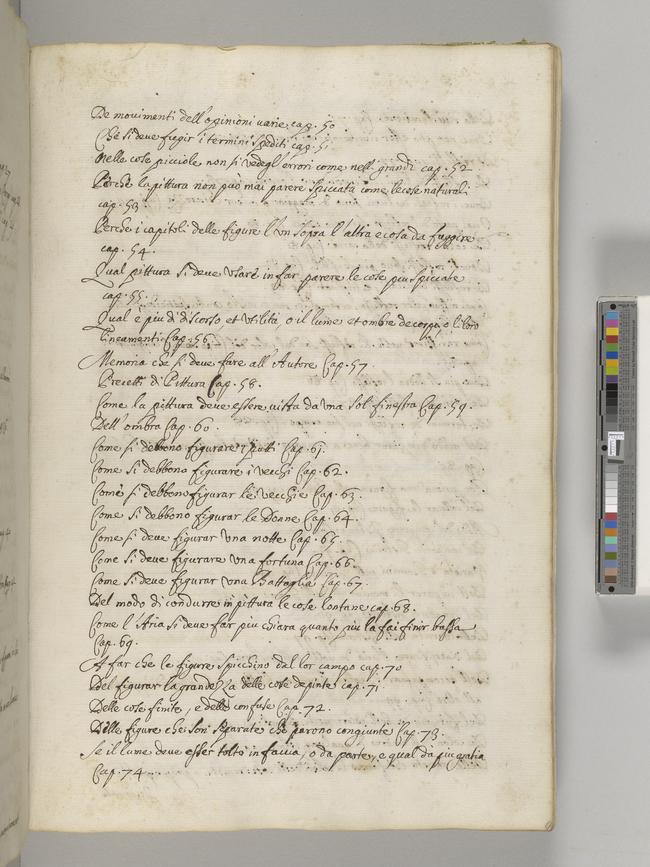 De movimenti dell'opinioni varie cap. 50
Che si deve fugir i termini spediti cap. 51
Nelle cose picciole non si vede gl'errori come nell grandi cap. 52
Perche la pittura non può mai parere spiccata come le cose naturali
cap. 53.
Perche i capitoli delle figure l'un sopra l'altra e cosa da fuggire
cap. 54.
Qual pittura si deve usare in far parere le cose piu spiccate
cap. 55.
Qual è piu di discorso, et utilità, o il lume et ombre de corpi, o li loro
lineamenti. Cap. 56
Memoria che si deve fare all'Autore Cap. 57
Precetti di Pittura Cap. 58.
Come la pittura deve essere vista da una sol finestra Cap. 59.
Dell'ombra Cap. 60.
Come si debbono figurare i putti Cap. 61.
Come si debbono figurare i vecchi Cap. 62.
Come si debbono figurar le vecchie Cap. 63.
Come si debbono figurar le Donne Cap. 64.
Come si deve figurar una notte Cap. 65.
Come si deve figurare una fortuna Cap. 66.
Come si deve figurar una Battaglia Cap. 67.
Del modo di condurre in pittura le cose lontane cap. 68.
Come l'Aria si deve far piu chiara quanto piu la fai finir bassa
Cap. 69.
A far che le figure spicchino dal lor campo cap. 70
Del figurar la grandezza delle cose depinte cap. 71
Delle cose finite, e delle confuse Cap. 72.
Delle figure che son separate che parono congiunte Cap. 73.
Se il lume deve esser tolto in faccia, o da parte, e qual da piu gratia
Cap. 74